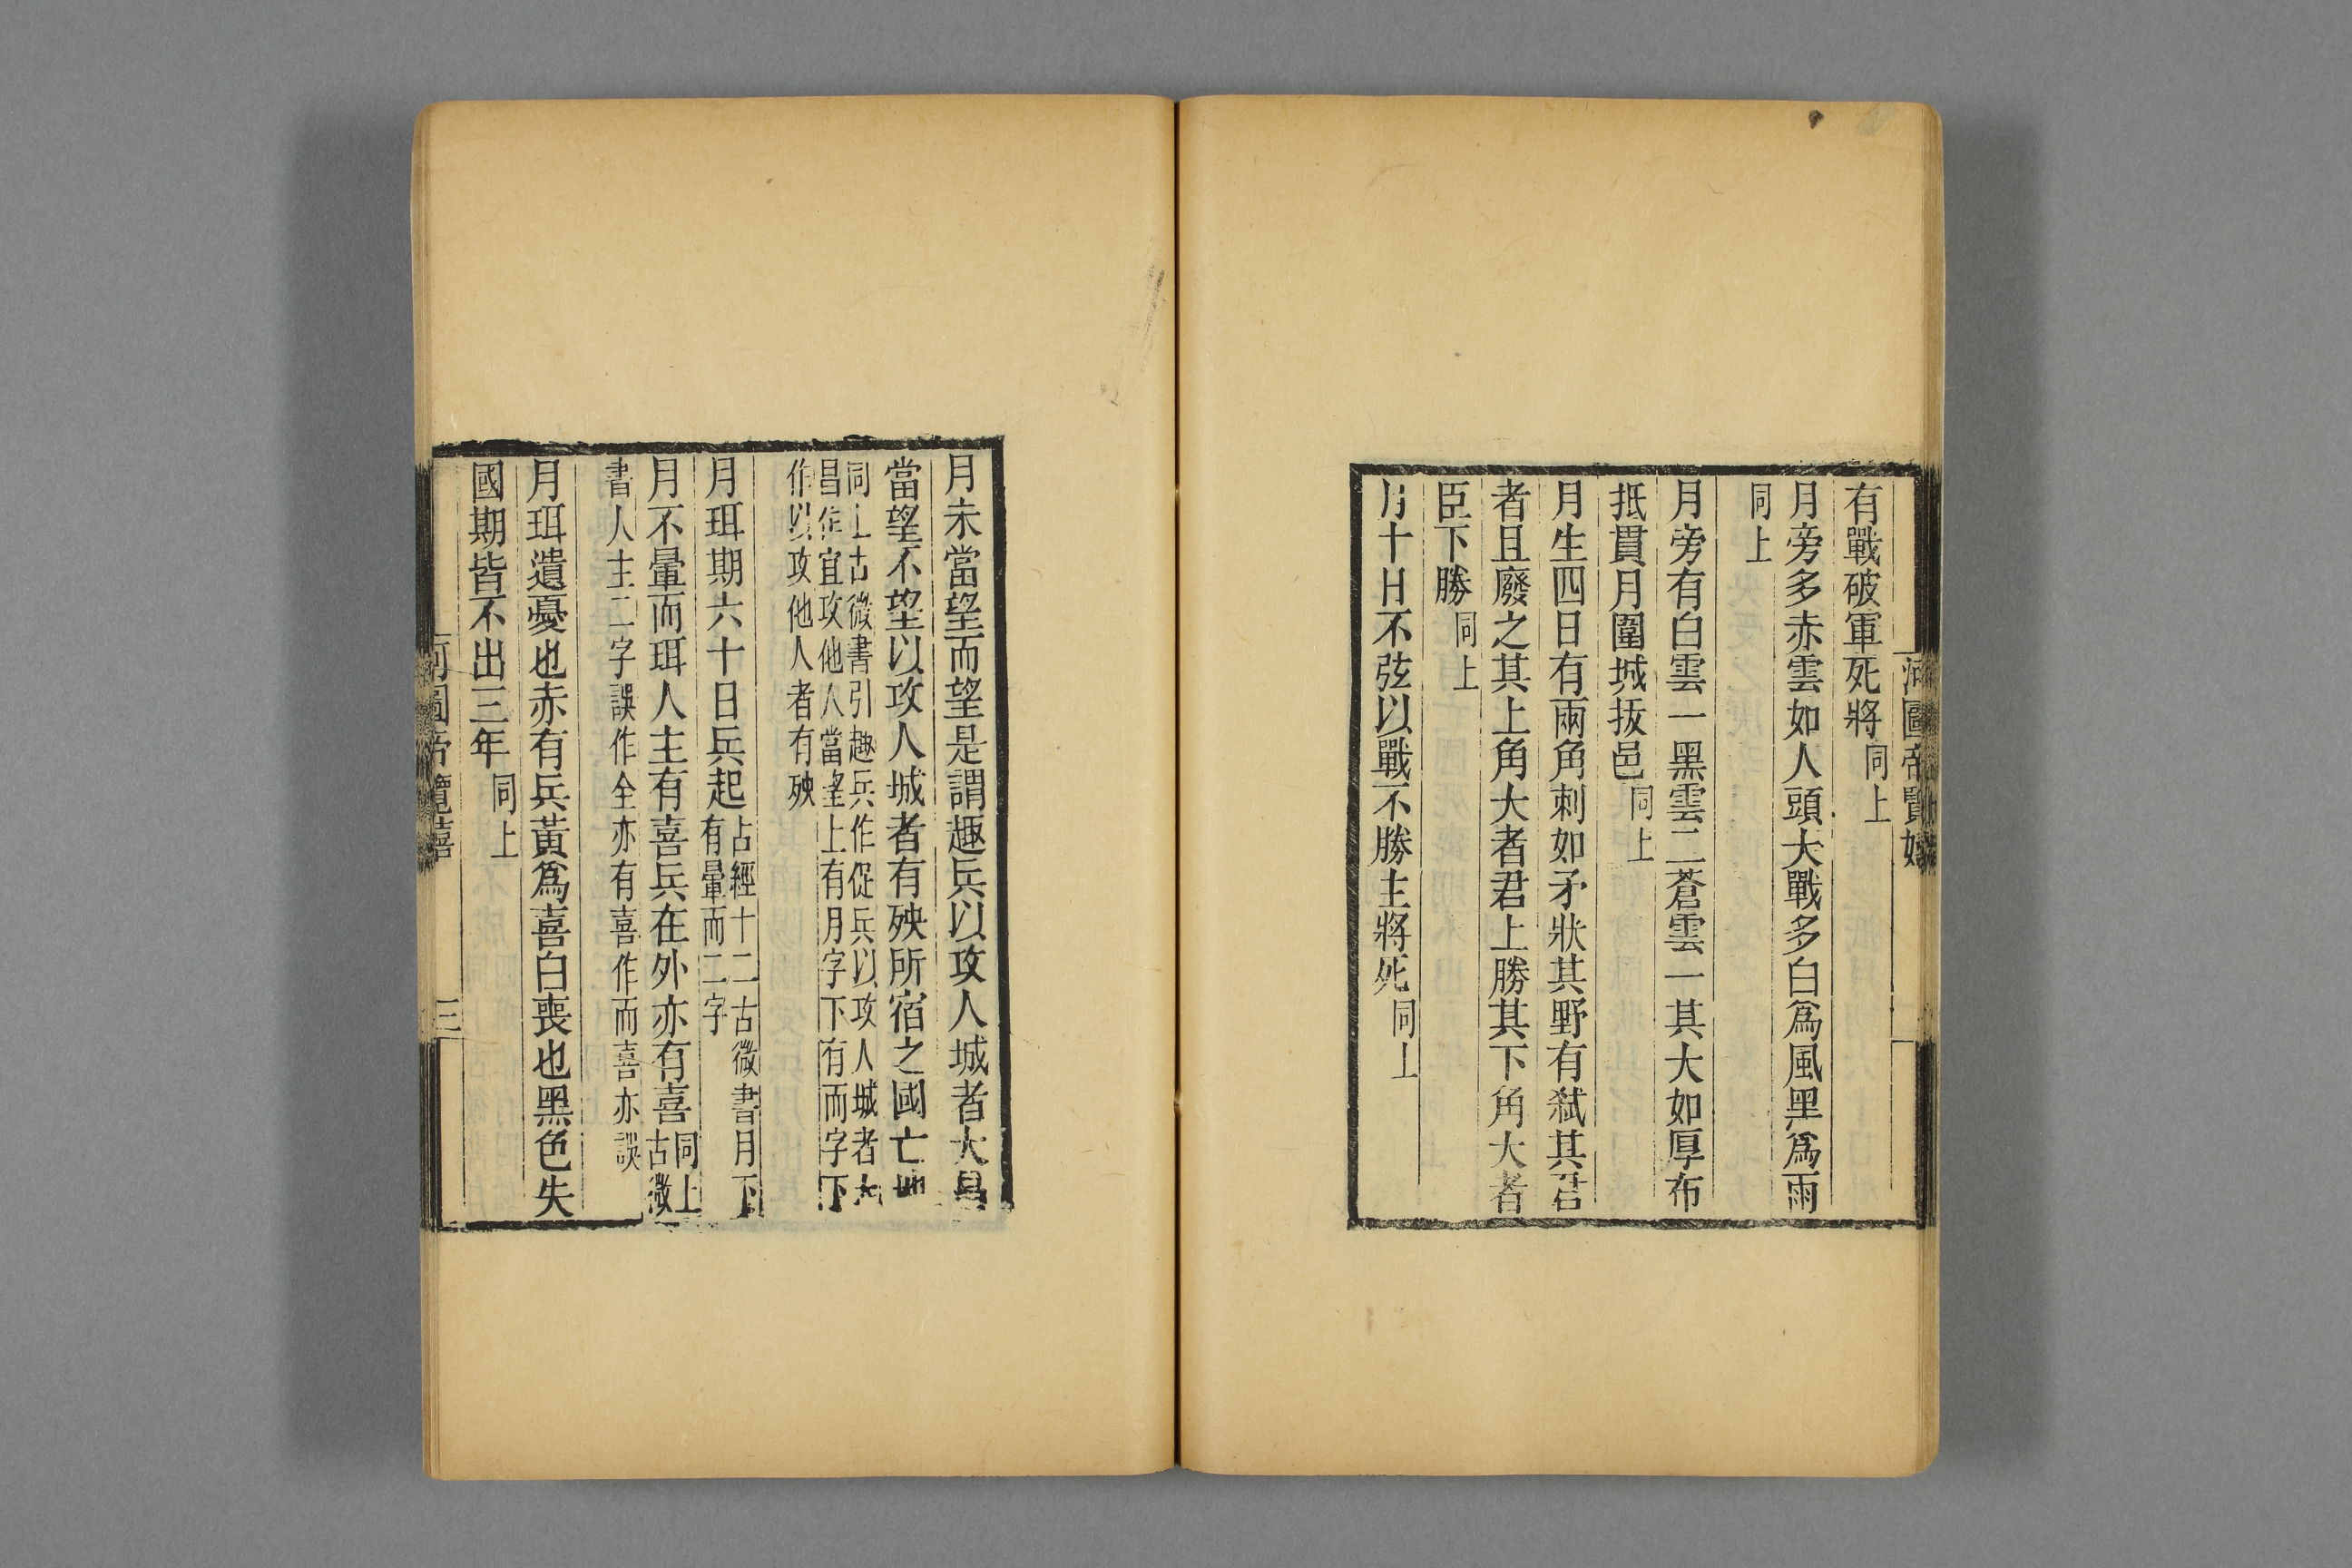 有戰破軍死將同上
月旁多赤雲如人頭大戰多白爲風黑爲雨
同上
月旁有白雲一黑雲二蒼雲一其大如厚布
抵貫月圍城拔邑同上
月生四日有兩角刺如矛狀其野有弑其君
者且廢之其上角大者君上勝其下角大者
臣下勝同上
月十日不弦以戰不勝主將死同上
月未當望而望是謂趣兵以攻人城者大昌
當望不望以攻人城者有殃所宿之國亡地
同上古微書引趣兵作促兵以攻人城者大
昌作宜攻他人當望上有月字下有而字下
作以攻他人者有殃
月珥期六十日兵起占經十二古微書月下
有暈而二字
月不暈而珥人主有喜兵在外亦有喜同上
古微
書人主二字誤作全亦有喜作而喜亦誤
月珥遺憂也赤有兵黃爲喜白喪也黑色失
國期皆不出三年同上
河圖帝覽嬉
三